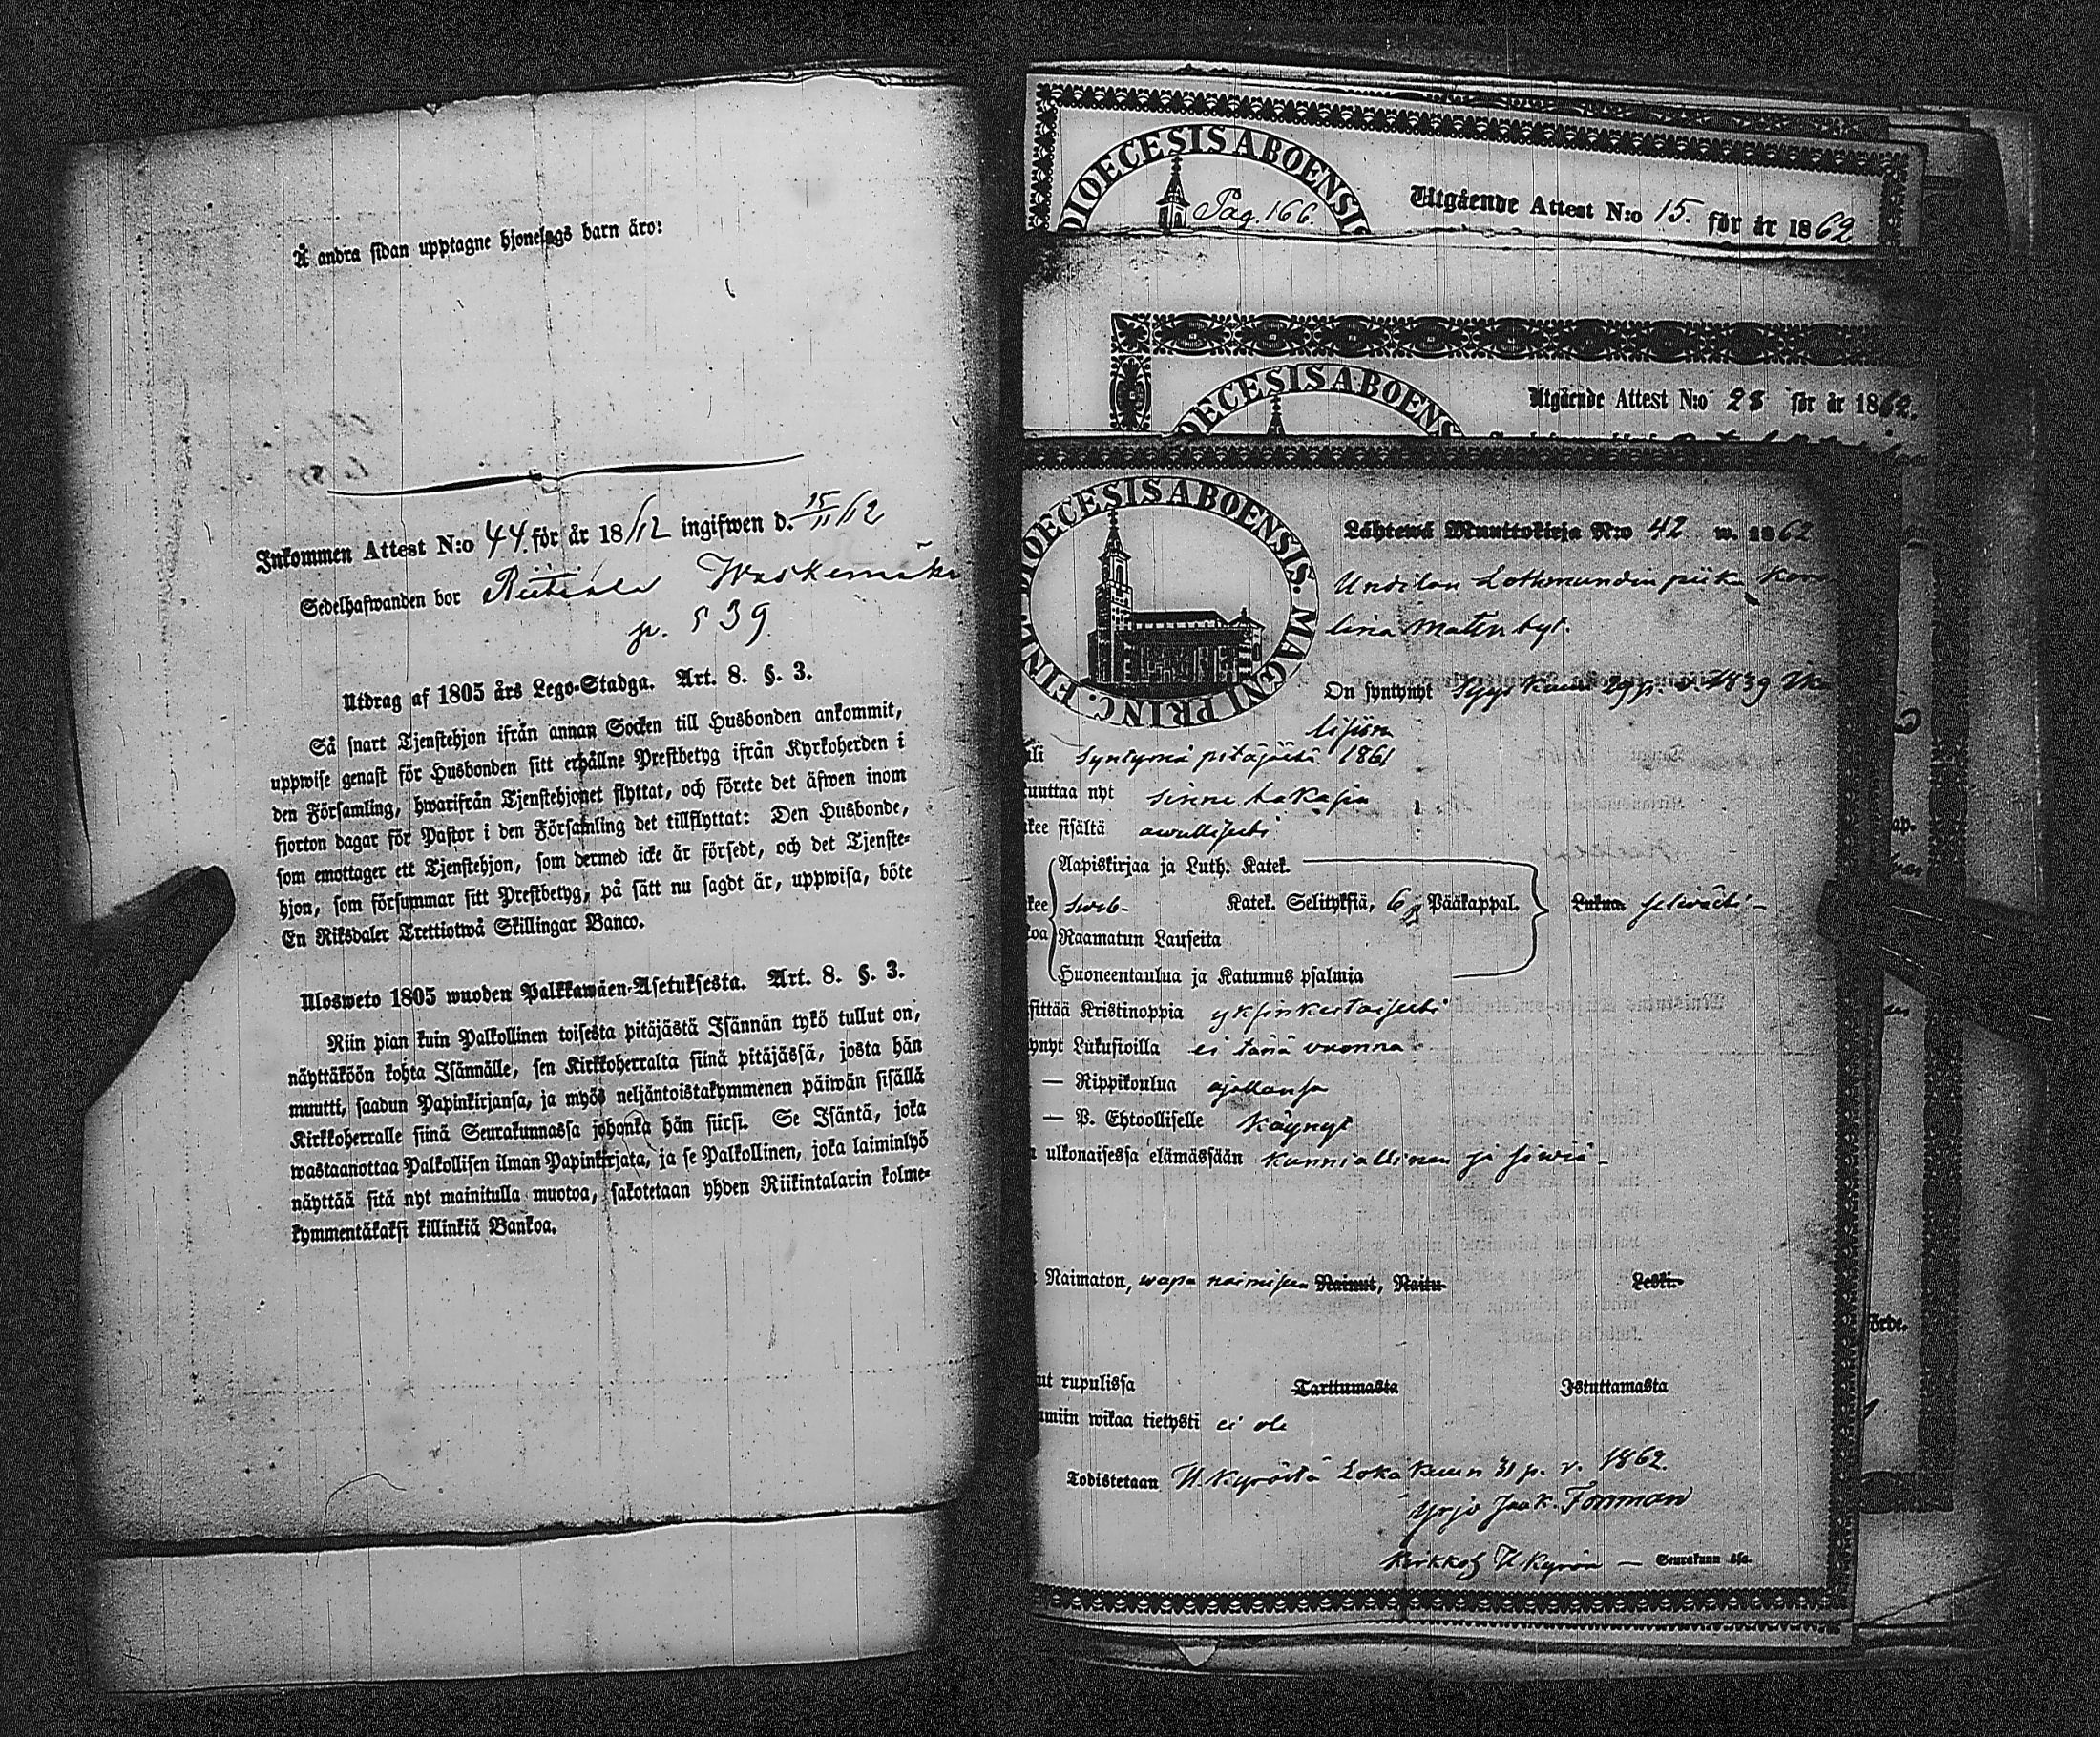 Å andra sidan upptagne hjonelags barn äro:
Inkommen Attest N:o 44. för år 18/12 ingifwen d. 15/11 /12
Sedelhafwanden bor
p. 539
Utdrag af 1805 års Lego-Stadga. Art. 8. §. 3.
Så snart Tjenstehjon ifrån annan Socken till Husbonden ankommit,
uppwise genast för Husbonden sitt erhållne Prestbetyg ifrån Kyrkoherden i
den Församling, hwarifrån Tjenstehjonet flyttat, och förete det äfwen inom
fjorton dagar för Pastor i den Församling det tillflyttat: Den Husbonde,
som emottager ett Tjenstehjon, som dermed icke är försedt, och det Tjenste-
hjon, som försummar sitt Prestbetyg, på sätt nu sagdt är, uppwisa, böte
En Riksdaler Trettiotwå Skillingar Banco.
Ulosweto 1805 wuoden Palkkawäen-Asetuksesta. Art. 8. §. 3.
Niin pian kuin Palkollinen toisesta pitäjästä Isännän tykö tullut on,
näyttäköön kohta Isännälle, sen Kirkkoherralta siinä pitäjässä, josta hän
muutti, saadun Papinkirjansa, ja myös neljäntoistakymmenen päiwän sisällä
Kirkkoherralle siinä Seurakunnassa johonka hän siirsi. Se Isäntä, joka
wastaanottaa Palkollisen ilman Papinkirjata, ja se Palkollinen, joka laiminlyö
näyttää sitä nyt mainitulla muotoa, sakotetaan yhden Riikintalarin kolme-
kymmentäkaksi killinkiä Bankoa.
DIOECESIS ABOENSI
Pag. 166.
Utgående Attest N:o 15. för år 1862
OECESIS ABOENS
Utgående Attest N:o 28 för år 1862.
DIOECESIS ABOENSIS. MAGNI PRINC. FINL.
Lähtewä Muuttokirja N:o 42 w. 1862
Undilan Lothmundin piika Karo
lina Matin tyt.
On syntynyt Syys kuun 29 p. v. 1839
li syntymä pitäjästä 1861
uuttaa nyt sinne takasin
kee sisältä awullisesti
Aapiskirjaa ja Luth. Katek.
kee Sweb- Katek. Selityksiä, 6 Pääkappal. Lukua selwästi-
toa Raamatun Lauseita
Huoneentaulua ja Katumus psalmia
sittää Kristinoppia yksinkertaisesti
ynyt Lukusioilla ei tänä vuonna
— Rippikoulua ajallansa
— P. Ehtoolliselle käynyt
ulkonaisessa elämässään kunniallinen ja siwiä-
Naimaton, wapa naimisen Nainut, Naitu. Leski.
ut rupulissa Tarttumasta Istuttamasta
umiin wikaa tietysti ei ole
Todistetaan H. Kyröstä Loka kuun 31 p. v. 1862.
Yrjö Jaak. Forsman
Kirkkoh H. Kyrön — Seurakunn:ssa.
ap.
Örbe.